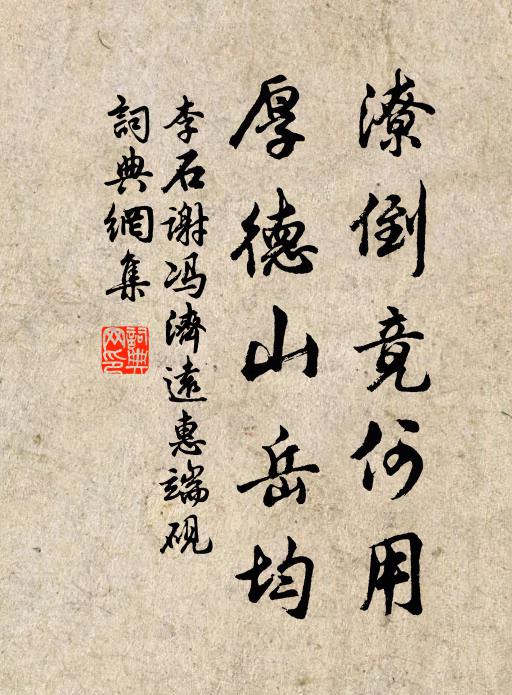 潦倒竟何用
厚德山岳均
李石谢冯濟遠惠端硯
詞典網集
詞典
网印